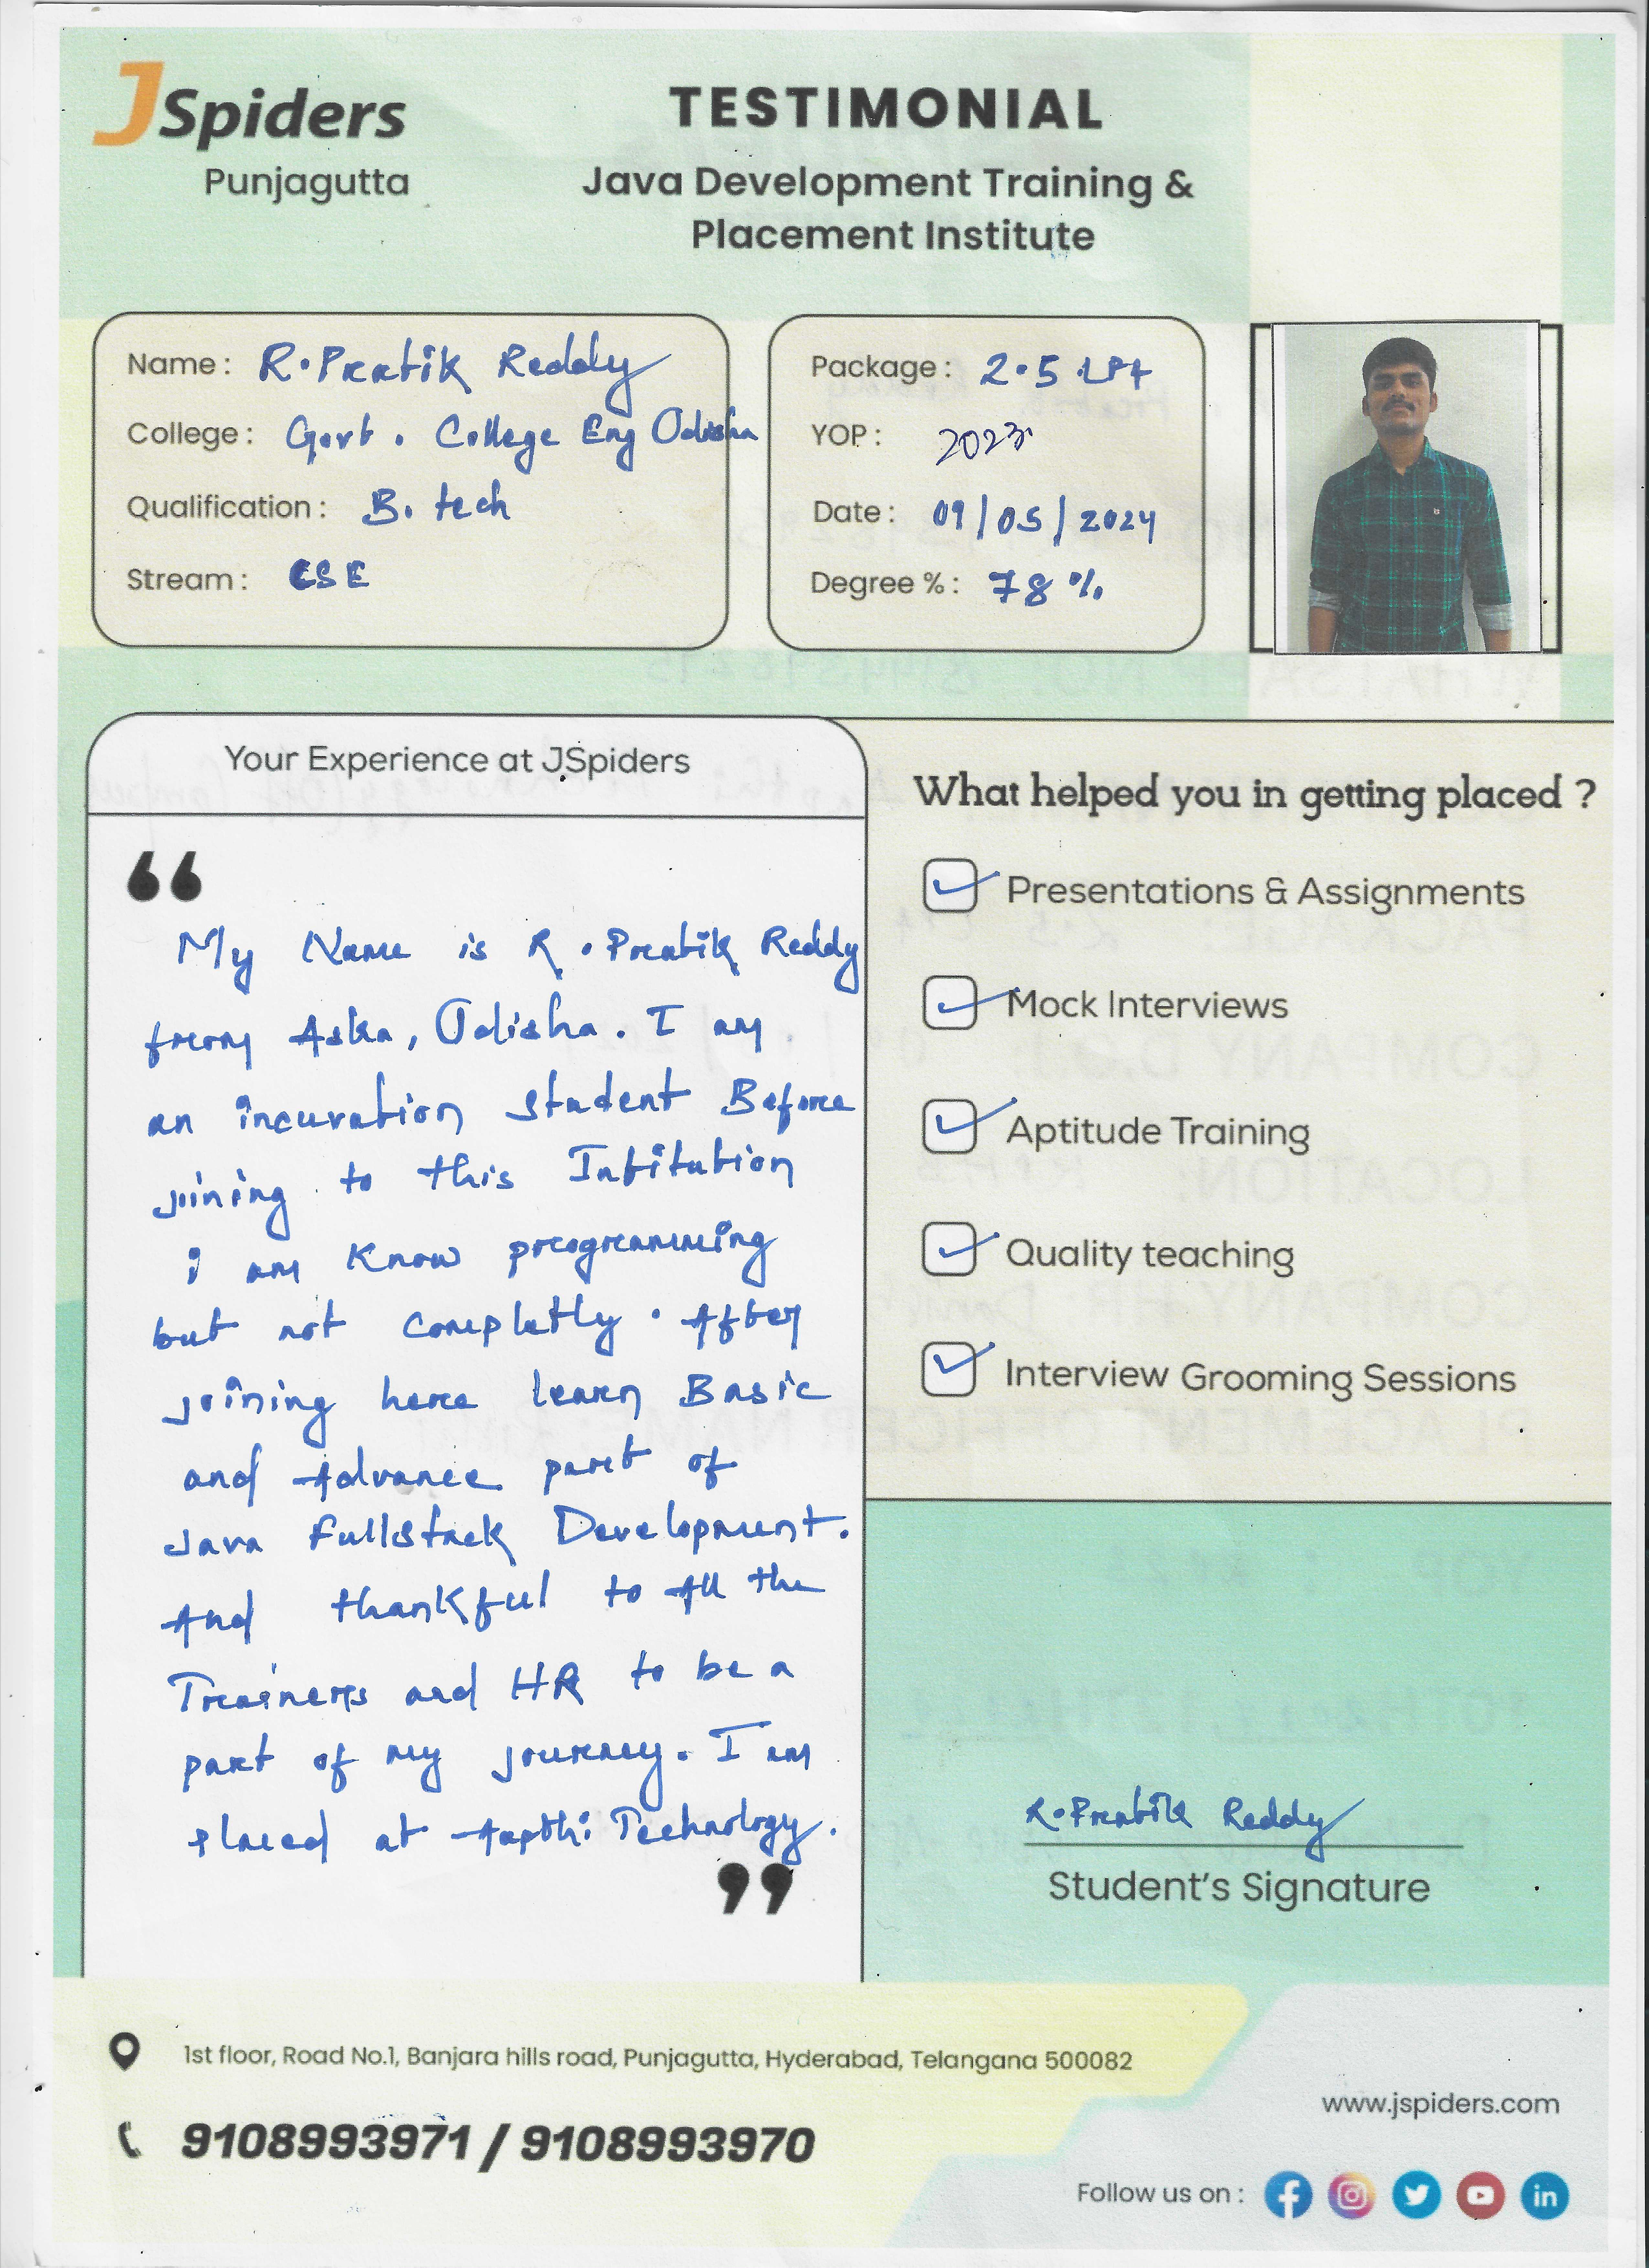 JSpiders
Punjagutta
TESTIMONIAL
Java Development Training &
Placement Institute
Name : R. Pratik Reddy
College : Govt. College Eng Odisha
Qualification : B. tech
Stream : CSE
Package : 2.5 LPA
YOP : 2023
Date : 09/05/2024
Degree % : 78 %
Your Experience at JSpiders
“
My Name is R. Pratik Reddy
from Aska, Odisha. I am
an incuvation student Before
joining to this Intitution
i am know programming
but not completly. After
joining here learn Basic
and Advance part of
Java Fullstack Development.
And thankful to All the
Trainers and HR to be a
part of my journey. I am
placed at Aapthi Technology.
”
What helped you in getting placed ?
Presentations & Assignments
Mock Interviews
Aptitude Training
Quality teaching
Interview Grooming Sessions
R. Pratik Reddy
Student's Signature
1st floor, Road No.1, Banjara hills road, Punjagutta, Hyderabad, Telangana 500082
9108993971 / 9108993970
www.jspiders.com
Follow us on :